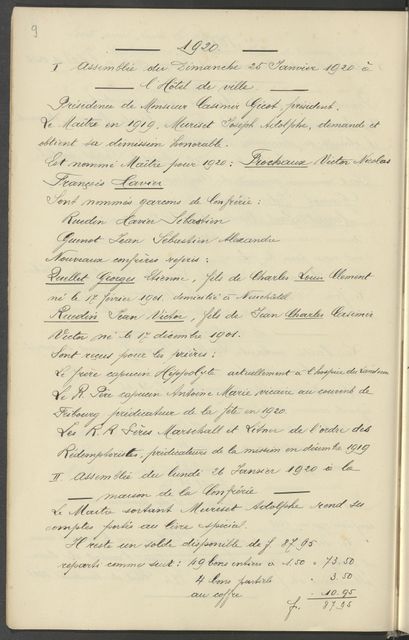 9
1920
I Assemblée du Dimanche 25 Janvier 1920 à
l'Hôtel de ville
Présidence de Monsieur Casimir Gicot, président.
Le Maître en 1919, Meuriset Joseph Adolphe, demande et
obtient sa démission honorable.
Est nommé Maître pour 1920: Frochaux Victor Nicolas
François Xavier
Sont nommés garçons de Confrérie:
Ruedin Xavier Sébastien
Guenot Jean Sébastien Alexandre
Nouveaux confrères reçus:
Quellet Georges Etienne, fils de Charles Louis Clément
né le 17 février 1901. domicilié à Neuchâtel
Ruedin Jean Victor, fils de Jean Charles Casimir
Victor né le 17 décembre 1901.
Sont reçus pour les prières:
Le frère capucin Hippolyte actuellement à l'hospice du Landeron
Le R. Père capucin Antoine Marie vicaire au couvent de
Fribourg prédicateur de la fête en 1920
Les R R Pères Marschall et de l'ordre des
Rédemptoristes, prédicateurs de la mission en décembre 1919
II. Assemblée du lundi 26 Janvier 1920 à la
maison de la Confrérie
Le Maître sortant Meuriset Adolphe rend ses
comptes portés au livre spécial.
Il reste un solde disponible de f. 87,95
réparti comme suit: 49 bons entiers à 1.50 = 73.50
4 bons partiels " 3.50
au coffre " 10.95
f. 87.95